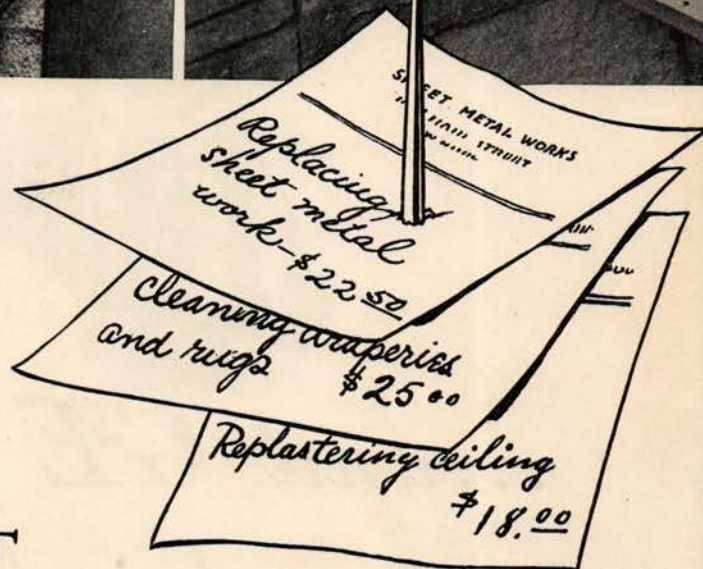 SHEET METAL WORKS
Replacing
sheet metal
work-$22 50
cleaning draperies
and rugs $25 00
Replastering ceiling
$18.00